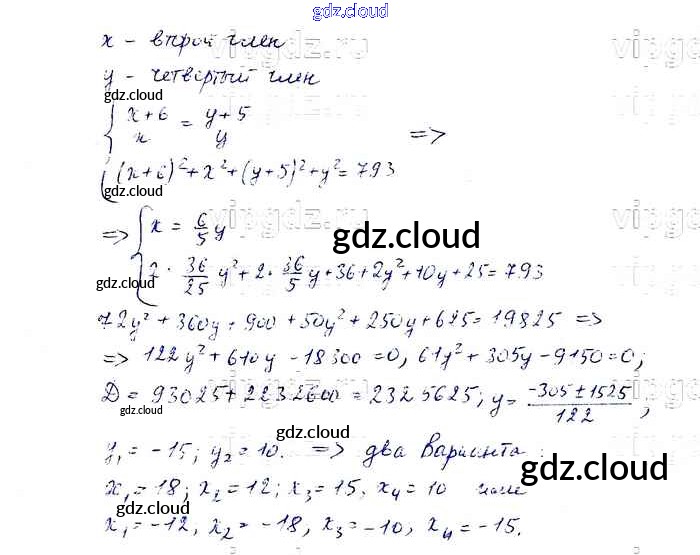 gdz.cloud
x - второй член
y - четвертый член
gdz.cloud
{ x+6/x = y+5/y =>
(x+6)²+x²+(y+5)²+y²=793
gdz.cloud
=> { x = 6/5 y
gdz.cloud
2 · 36/25 y²+2 · 36/5 y+36+2y²+10y+25=793
gdz.cloud
72y²+360y+900+50y²+250y+625=19825 =>
gdz.cloud
=> 122y²+610y-18300=0, 61y²+305y-9150=0;
D = 93025+2232600=2325625; y= -305±1525/122;
gdz.cloud
y₁=-15; y₂=10. => два варианта:
gdz.cloud
gdz.cloud
x₁=18; x₂=12; x₃=15, x₄=10 или
gdz.cloud
x₁=-12, x₂=-18, x₃=-10, x₄=-15.